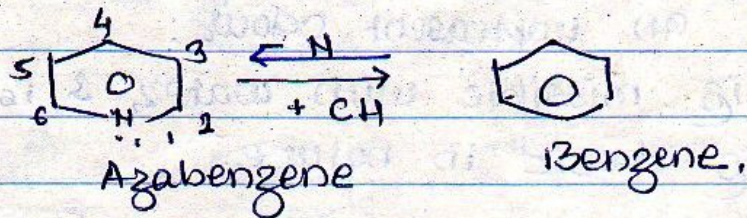 4
5 3
N
6 N 2
.. 1
+ CH
Azabenzene Benzene.